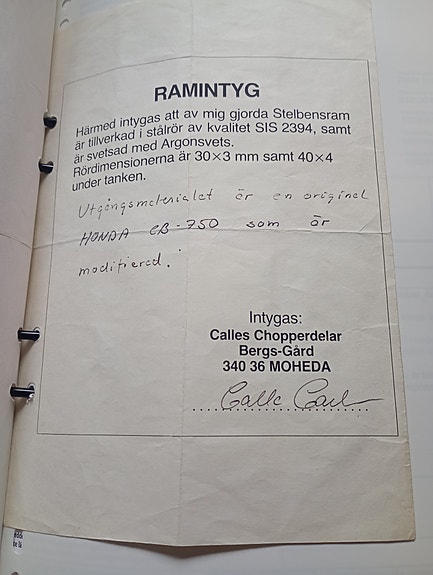 RAMINTYG
Härmed intygas att av mig gjorda Stelbensram
är tillverkad i stålrör av kvalitet SIS 2394, samt
är svetsad med Argonsvets.
Rördimensionerna är 30×3 mm samt 40×4
under tanken.
Utgångsmaterialet är en original
HONDA CB-750 som är
modifierad.
Intygas:
Calles Chopperdelar
Bergs-Gård
340 36 MOHEDA
Calle